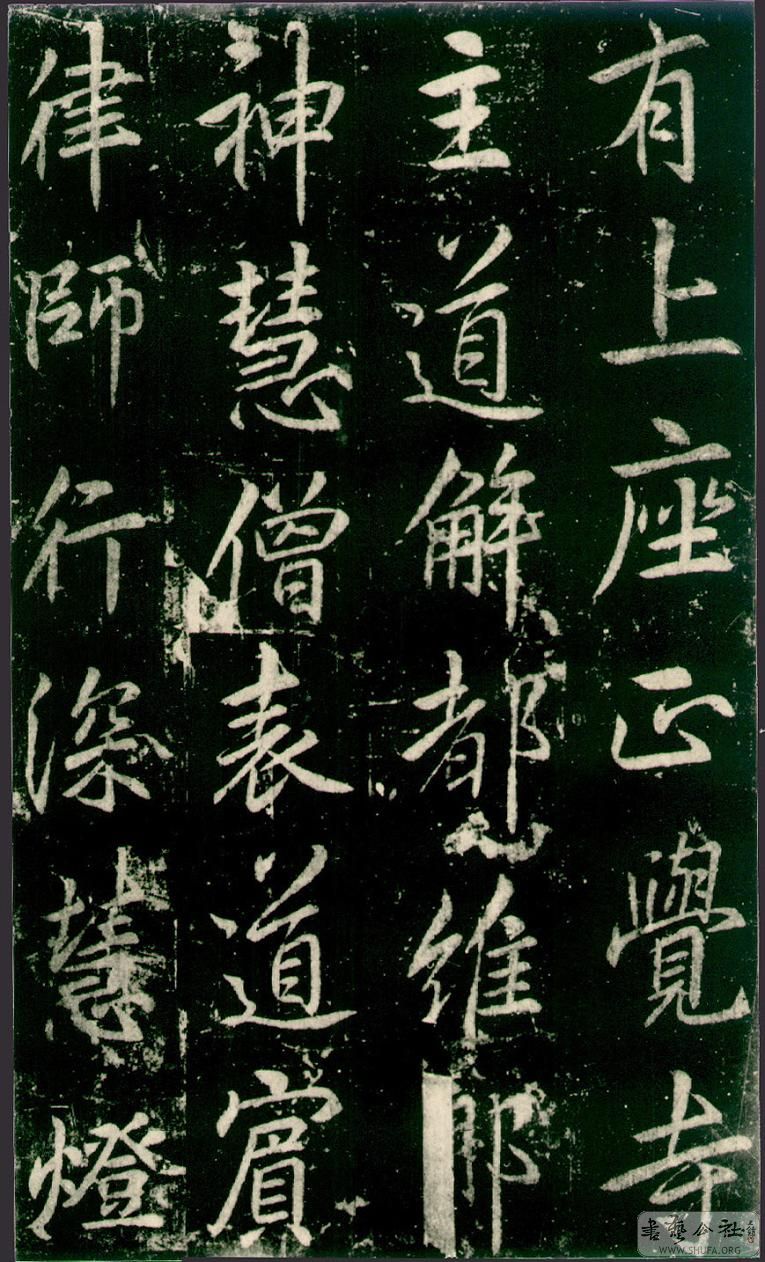 有上座正覺寺
主道解都維那
神慧僧表道賓
律師行深慧燈
書藝公社
WWW.SHUFA.ORG